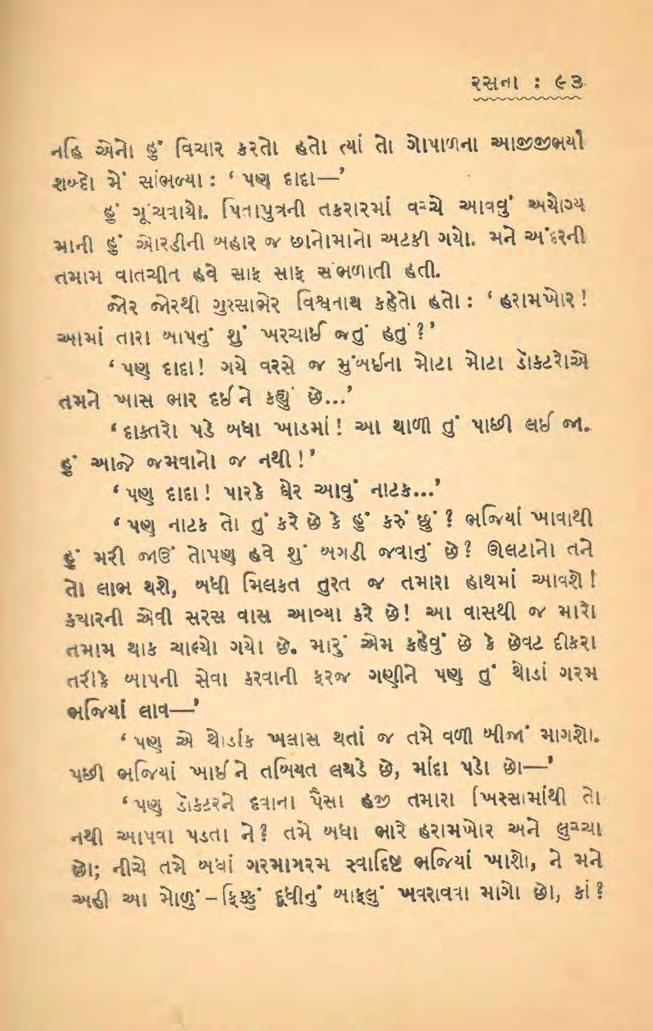 રસના : ૯૩
નહિ એનો હું વિચાર કરતો હતો ત્યાં તો ગોપાળના આજીજીભર્યા
શબ્દો મેં સાંભળ્યા : ‘ પણ દાદા—’
હું ગૂંચવાયો. પિતાપુત્રની તકરારમાં વચ્ચે આવવું અયોગ્ય
માની હું ઓરડીની બહાર જ છાનોમાનો અટકી ગયો. મને અંદરની
તમામ વાતચીત હવે સાફ સાફ સંભળાતી હતી.
જોર જોરથી ગુસ્સાભેર વિશ્વનાથ કહેતો હતો : ‘ હરામખોર !
આમાં તારા બાપનું શું ખરચાઈ જતું હતું ?’
‘ પણ દાદા ! ગયે વરસે જ મુંબઈના મોટા મોટા ડૉક્ટરોએ
તમને ખાસ ભાર દઈને કહ્યું છે...’
‘ દાક્તરો પડે બધા ખાડમાં ! આ થાળી તું પાછી લઈ જા.
હું આજે જમવાનો જ નથી !’
‘ પણ દાદા ! પારકે ઘેર આવું નાટક...’
‘ પણ નાટક તો તું કરે છે કે હું કરું છું ? ભજિયાં ખાવાથી
હું મરી જાઉં તોપણ હવે શું બગડી જવાનું છે ? ઊલટાનો તને
તો લાભ થશે, બધી મિલકત તુરત જ તમારા હાથમાં આવશે !
ક્યારની એવી સરસ વાસ આવ્યા કરે છે ! આ વાસથી જ મારો
તમામ થાક ચાલ્યો ગયો છે. મારું એમ કહેવું છે કે છેવટ દીકરા
તરીકે બાપની સેવા કરવાની ફરજ ગણીને પણ તું થોડાં ગરમ
ભજિયાં લાવ—’
‘ પણ એ થોડાંક ખલાસ થતાં જ તમે વળી બીજાં માગશો.
પછી ભજિયાં ખાઈને તબિયત લથડે છે, માંદા પડો છો—’
‘ પણ ડૉક્ટરને દવાના પૈસા હજી તમારા ખિસ્સામાંથી તો
નથી આપવા પડતા ને ? તમે બધા ભારે હરામખોર અને લુચ્ચા
છો; નીચે તમે બધાં ગરમાગરમ સ્વાદિષ્ટ ભજિયાં ખાશો, ને મને
અહીં આ મોળું – ફિક્કું દૂધીનું બાફલું ખવરાવવા માગો છો, કાં ?